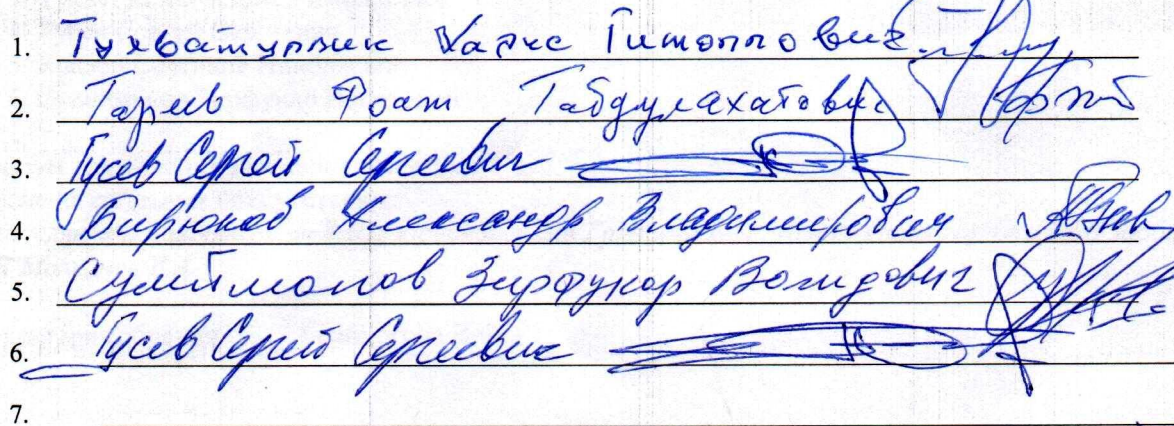 1. Тухватуллин Харис
2. Гариев Фоат Габдулахатович
3. Гусев Сергей Сергеевич
4. Бирюков Александр Владимирович
5. Сулейманов Вагидович
6. Гусев Сергей Сергеевич
7.